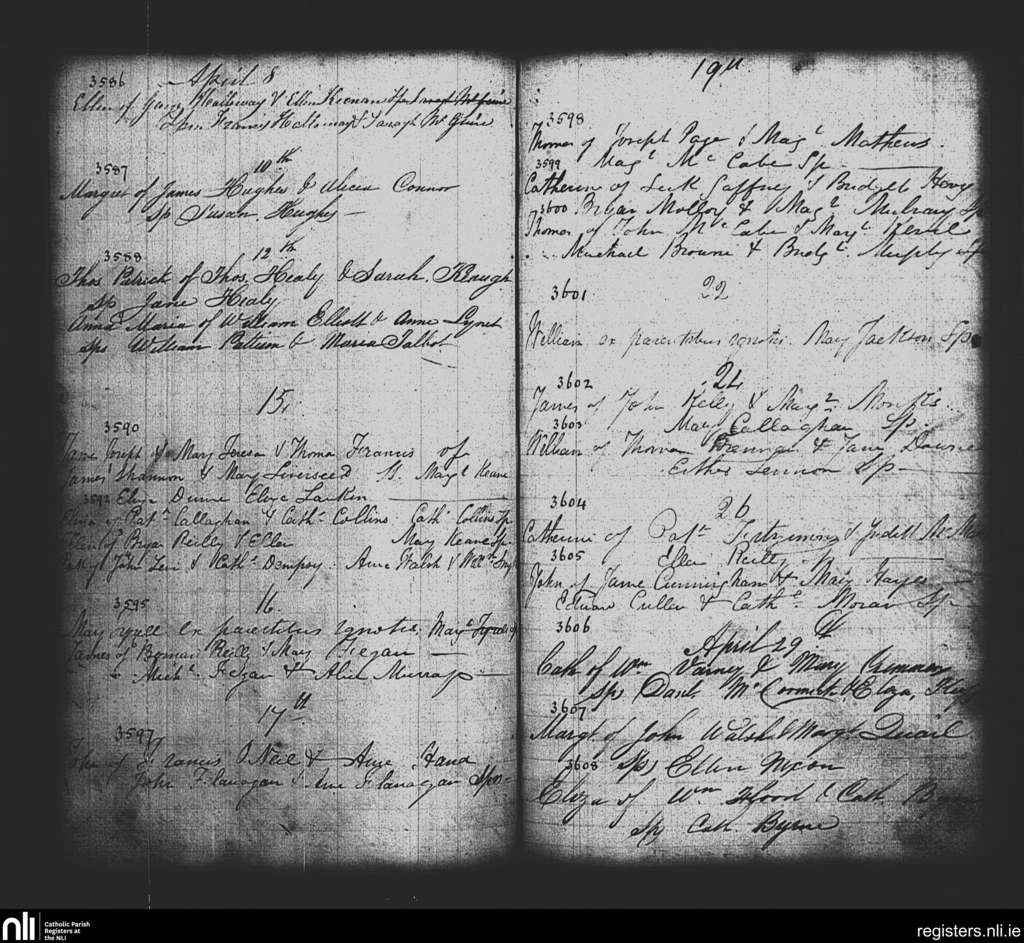 3586 April 8
Ellen of James Halloway & Ellen Kienan Sps Saragh McGuire
Sps. Francis Halloway & Saragh McGuire
3587 10th
Margret of James Hughes & Alicia Connor
Sp Susan Hughs
3588 12th
Thos Patrick of Thos Healy & Sarah Keaugh
Sp Jane Healy
Anna Maria of William Elliott & Anne Lynet
Sps William Pattison & Maria Talbot
15
3590
Joseph & Mary Teresa & Thomas Francis of
James Shannon & Mary Liverseed S. Mary Keane
3592 Eliza Dunne Eliza Larkin
Eliza of Patk Callaghan & Cathe Collins. Cath Collins Sp
Ellen of Bryan Reilly & Ellen Mary Keane Sp
John Levi & Kathe Dempsy. Anne Walsh & Willm
3595 16
Mary ex parentibus ignotis, Mary
James of Bernard Reilly & Mary Fiegan
Michl Feegan & Alice Murray
17th
3597
John of Francis O Neil & Anne Hand
John Flanagan & Anne Flanagan Spos
19th
3598
Thomas of Joseph Page & Magt Mathews
3599 Magt McCabe Sp
Catherine of Luk Gaffney & Bridgett Henry
3600 Bryan Molloy & Magt Mulvany Sp
Thomas of John McCabe & Mary
Michael Browne & Bridgt Murphy Sp
3601 22
William ex parentibus ignotis. Mary Jackson Sp
3602 24
James of John Kelly & Mary
3603 Mary Callaghan Sp.
William of Thomas Brennan & Jane Downe
Esther Lennon Sp
3604 26
Catherine of Patk Fitzsimons & Judith
3605 Ellen Reilly Sp
John of Jame Cunningham & Mary Hayes
Edward Cullen & Cathe Moran Sp
3606
April 29th
Cath of Wm Varney & Mary Crimmen
Sps Danl McCormick & Eliza
3607
Margt of John Walsh & Margt Quail
3608 Sps Ellen Nixon
Eliza of Wm Hood & Cath Byrne
Sp Cath Byrne
nli
Catholic Parish
Registers at
the NLI
registers.nli.ie